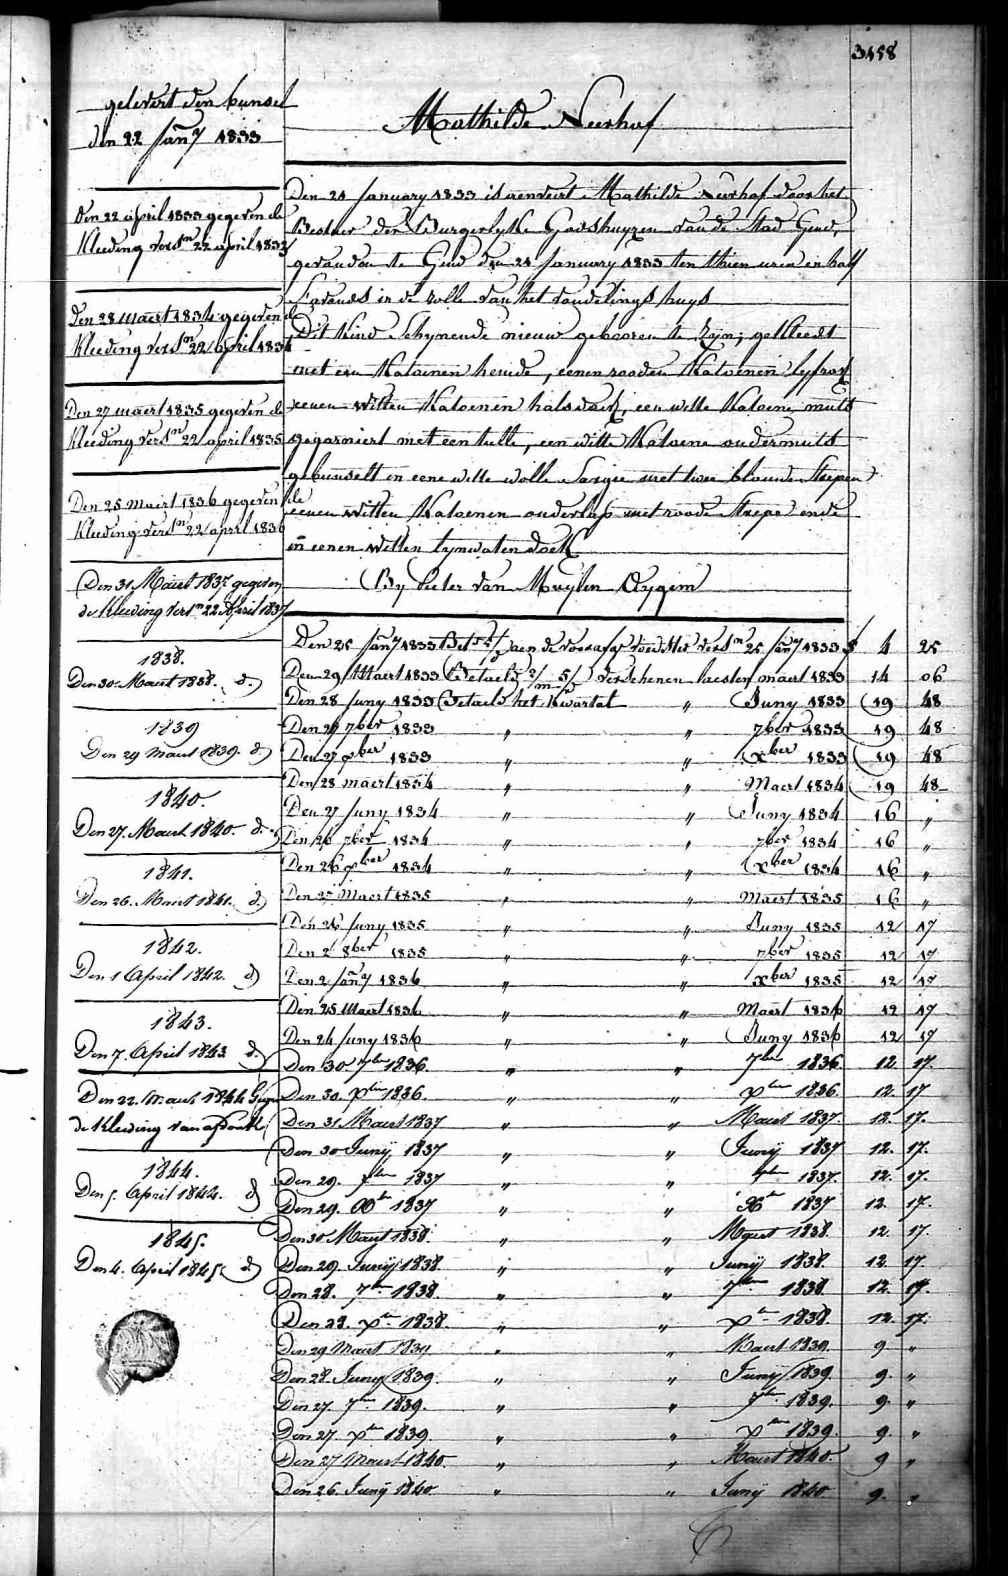 3458
gelevert den bunsel
den 22 Jan^y 1833
Den 22 april 1833 gegeven de
Kleeding vers^n 22 april 1833
Den 28 maert 1834 gegeven de
Kleeding vers^n 22 april 1834
Den 27 maert 1835 gegeven de
Kleeding vers^n 22 april 1835
Den 25 maert 1836 gegeven de
Kleeding vers^n 22 april 1836
Den 31 Maert 1837 gegeven
de Kleeding vers^n 22 April 1837
1838.
Den 30. Maert 1838. d°
1839
Den 29 Maert 1839. d°
1840.
Den 27. Maert 1840. d°
1841.
Den 26. Maert 1841. d°
1842.
Den 1 April 1842. d°
1843.
Den 7. April 1843 d°
Den 22. Maert 1844
de Kleeding van
1844.
Den 5. April 1844. d°
1845.
Den 4. April 1845 d°
Mathilde Neerhof
Den 21 January 1833 is aenveert Mathilde Neerhof door het
Bestier der Burgerlyke Godshuyzen van de Stad Gend,
gevonden te Gend den 21 January 1833 ten thien uren en half
s'avonds in de rolle van het vondelings huys
Dit kind schynende nieuw gebooren te zyn; gekleedt
met een Katoenen hemde, eenen rooden Katoenen lyfrok
eenen witten Katoenen halsdoek, een witte Katoene muts
gegarniert met een tulle, een witte Katoene ondermuts
gebunselt in eene witte wolle Sargie met twee blauwe strepen
eenen witten Katoenen onderlap met roode strepe ende
in eenen witten lynwaten doek
By Pieter van Muylen Deygem
Den 25 Jan^y 1833 Bet^lt aen de voedster vers^n 25 Jan^y 1833 4 25
Den 29 Maert 1833 Betaeld verschenen laesten maert 1833 14 06
Den 28 Juny 1833 Betaeld het Kwartal " Juny 1833 19 48
Den 27 7ber 1833 " " 7ber 1833 19 48
Den 27 xber 1833 " " xber 1833 19 48
Den 28 maert 1834 " " Maert 1834 19 48
Den 27 Juny 1834 " " Juny 1834 16 "
Den 26 7ber 1834 " " 7ber 1834 16 "
Den 26 xber 1834 " " xber 1834 16 "
Den 27 Maert 1835 " " Maert 1835 16 "
Den 26 Juny 1835 " " Juny 1835 12 17
Den 2 8ber 1835 " " 7ber 1835 12 17
Den 2 Jan^y 1836 " " xber 1835 12 17
Den 25 Maert 1836 " " Maert 1836 12 17
Den 24 Juny 1836 " " Juny 1836 12 17
Den 30 7ber 1836. " " 7ber 1836 12. 17.
Den 30. xber 1836. " " xber 1836. 12. 17
Den 31. Maert 1837 " " Maert 1837. 12. 17.
Den 30 Junij 1837 " " Junij 1837 12. 17.
Den 29. 7ber 1837 " " 7ber 1837. 12. 17.
Den 29. Xber 1837 " " Xber 1837 12. 17.
Den 30 Maert 1838. " " Maert 1838. 12. 17.
Den 29. Junij 1838. " " Junij 1838. 12. 17.
Den 28. 7ber 1838. " " 7ber 1838. 12. 17.
Den 28. xber 1838. " " xber 1838. 12. 17.
Den 29 Maert 1839 " " Maert 1839. 9 "
Den 28. Junij 1839. " " Junij 1839. 9. "
Den 27. 7ber 1839. " " 7ber 1839. 9. "
Den 27. xber 1839. " " xber 1839. 9. "
Den 27 Maert 1840. " " Maert 1840. 9 "
Den 26. Junij 1840 " " Junij 1840 9. "